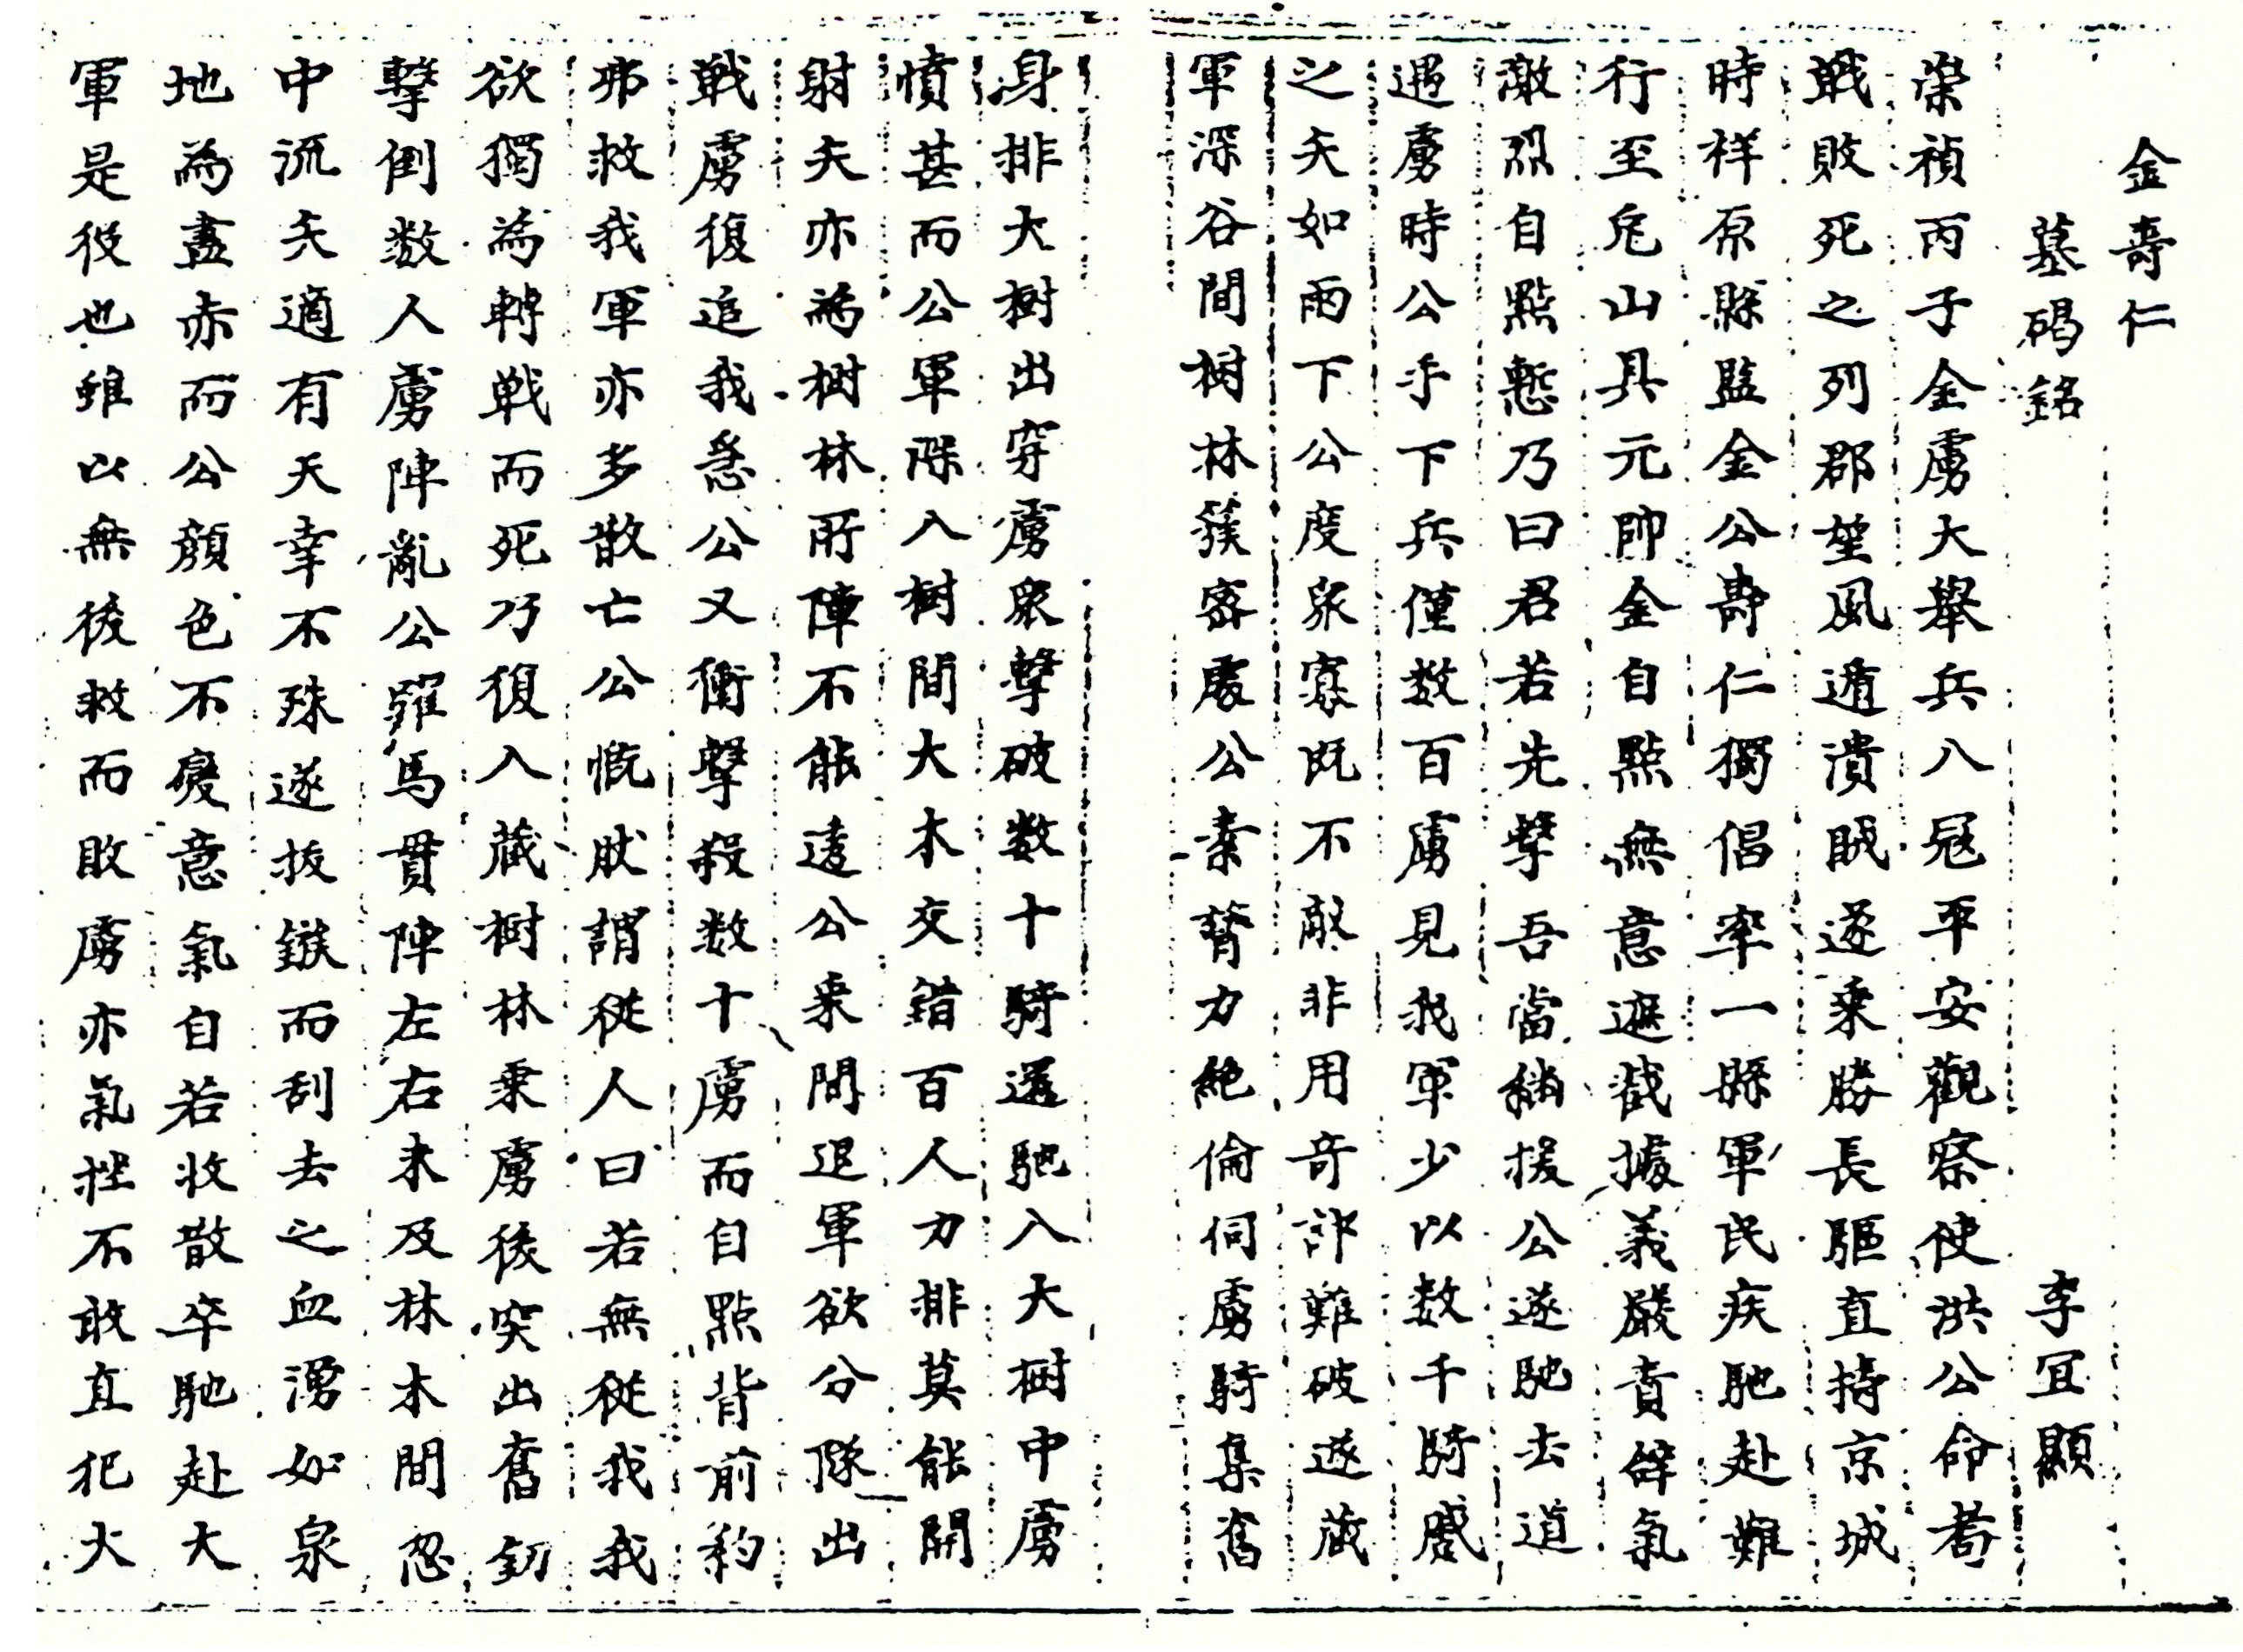 金壽仁
墓碣銘　李冝顯
崇禎丙子金虜大舉兵入冦平安觀察使洪公命耉
戰敗死之列郡望風遁潰賊遂乗勝長驅直擣京城
時祥原縣監金公壽仁獨倡率一縣軍民疾馳赴難
行至兎山具元帥金自點無意遮截據義嚴責辭氣
激烈自點慙乃曰君若先擊吾當繼援公遂馳去道
遇虜時公手下兵僅数百虜見我軍少以数千騎蹙
之矢如雨下公度衆寡既不敵非用奇詐難破遂蔵
軍深谷間樹林簇密處公素膂力絶倫伺虜騎集奮
身排大樹出穿虜衆擊破数十騎還馳入大樹中虜
憤甚而公軍深入樹間大木交錯百人力排莫能開
射矢亦為樹林所障不能逺公乗間退軍欲分隊出
戦虜復追我急公又衝擊殺数十虜而自點背前約
弗救我軍亦多散亡公慨肰謂従人曰若無従我我
欲獨為轉戦而死乃復入蔵樹林乗虜後突出奮釰
擊倒数人虜陣亂公躍馬貫陣左右未及林木間忽
中流矢適有天幸不殊遂拔鏃而刮去之血湧如泉
地為盡赤而公顔色不變意氣自若收散卒馳赴大
軍是役也雖以無後救而敗虜亦氣挫不敢直犯大